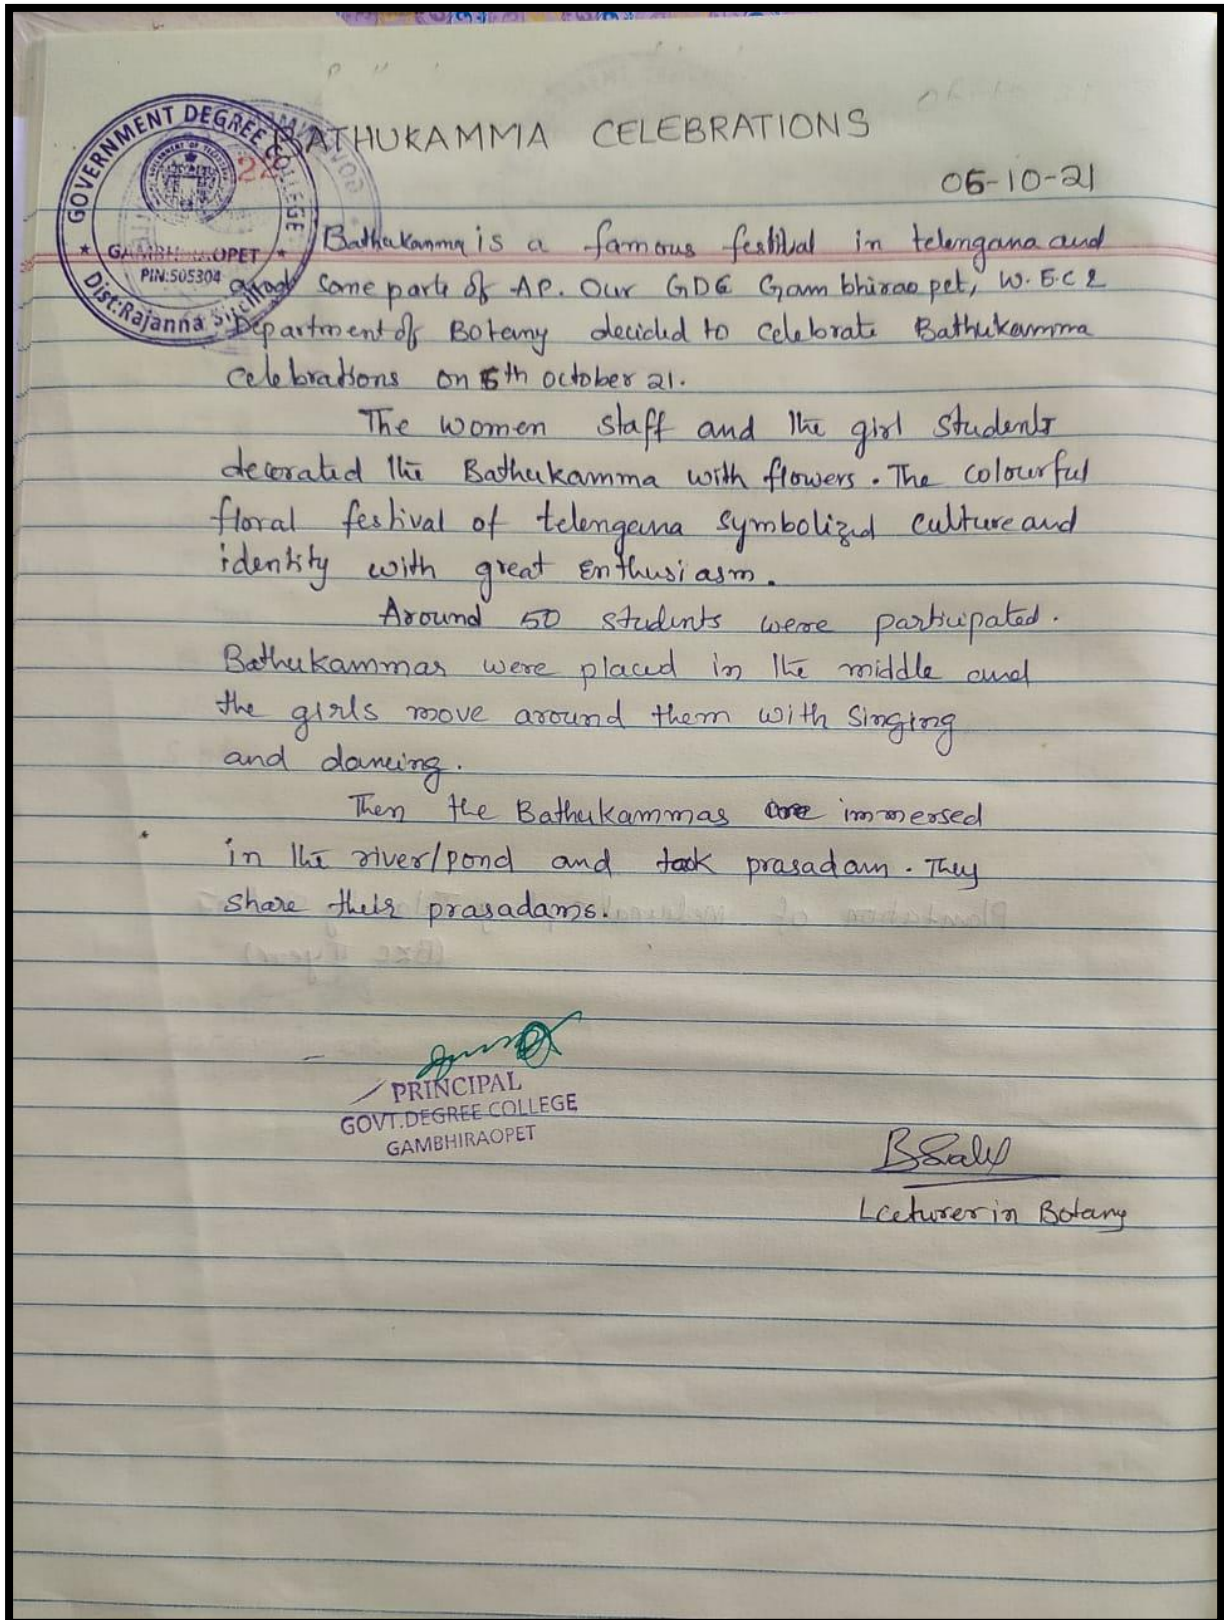 GOVERNMENT DEGREE COLLEGE
22
GAMBHIRAOPET
PIN:505304
Dist:Rajanna Sircilla
BATHUKAMMA CELEBRATIONS
05-10-21
Bathukamma is a famous festival in telengana and
some parts of AP. Our GDC Gambhiraopet, W.E.C &
Department of Botany decided to celebrate Bathukamma
celebrations on 5th october 21.
The women staff and the girl students
decorated the Bathukamma with flowers. The colourful
floral festival of telengana symbolized culture and
identity with great enthusiasm.
Around 50 students were participated.
Bathukammas were placed in the middle and
the girls move around them with singing
and dancing.
Then the Bathukammas are immersed
in the river/pond and took prasadam. They
share their prasadams.
PRINCIPAL
GOVT.DEGREE COLLEGE
GAMBHIRAOPET
Lecturer in Botany